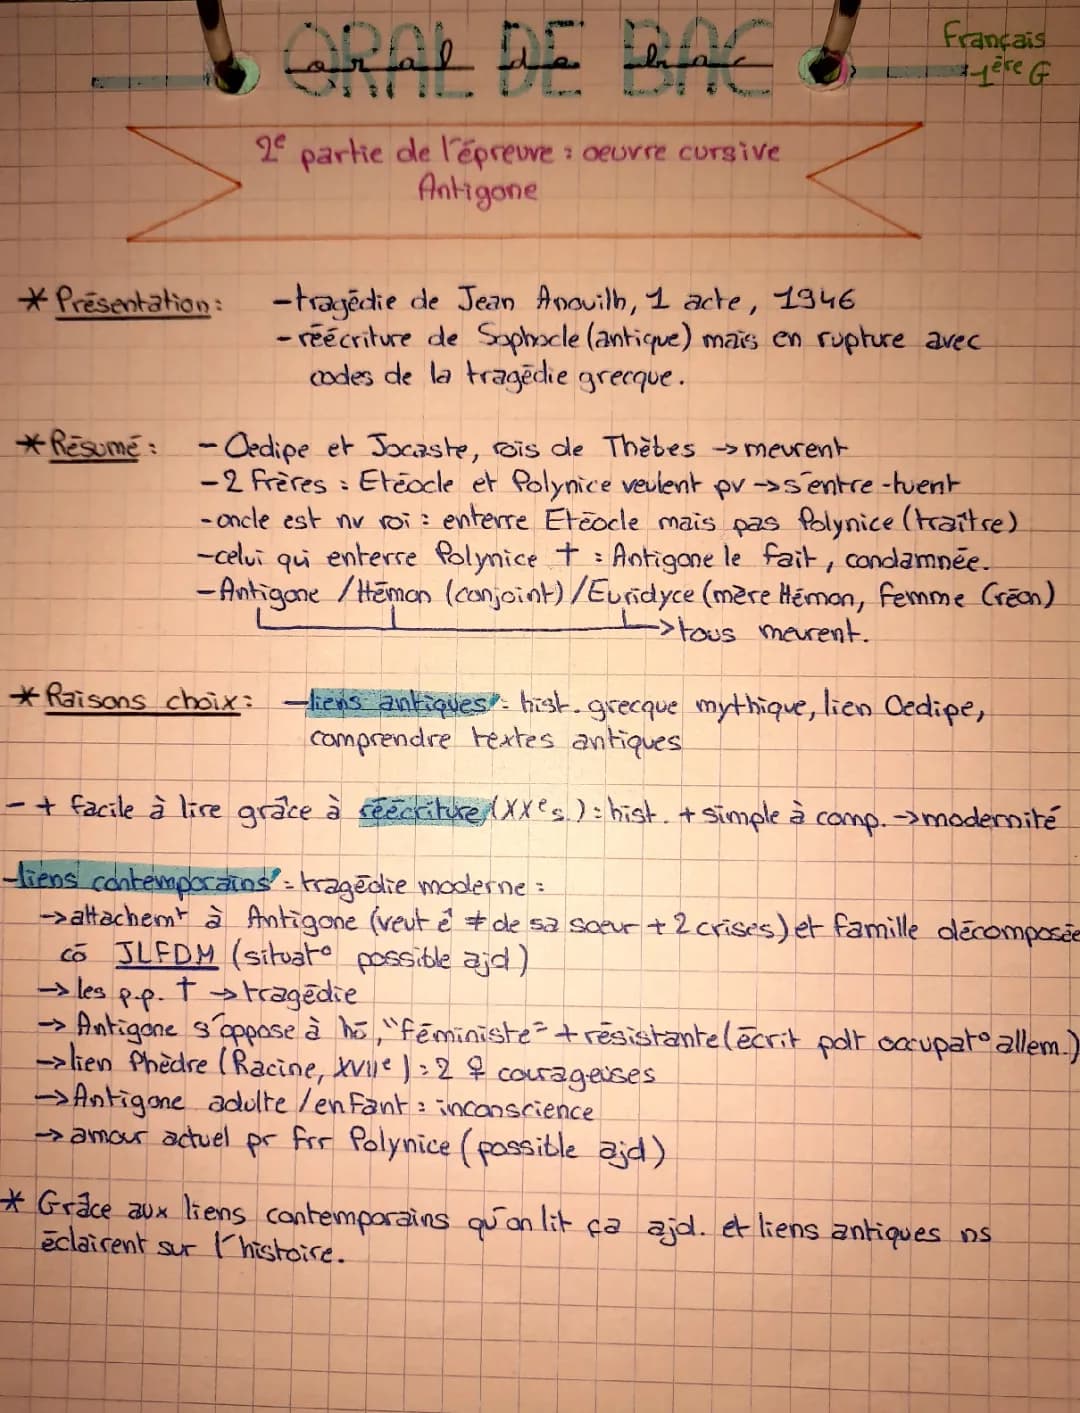 ORAL DE BAC
oral de bac
Français
1ère G
2e partie de l'épreuve : oeuvre cursive
Antigone
* Présentation : -tragédie de Jean Anouilh, 1 acte, 1946
- réécriture de Sophocle (antique) mais en rupture avec
codes de la tragédie grecque.
* Résumé : - Oedipe et Jocaste, rois de Thèbes → meurent
- 2 frères : Etéocle et Polynice veulent pv → s'entre-tuent
- oncle est nv roi : enterre Etéocle mais pas Polynice (traître)
-celui qui enterre Polynice † : Antigone le fait, condamnée.
- Antigone / Hémon (conjoint) / Euridyce (mère Hémon, femme Créon)
→ tous meurent.
* Raisons choix : -liens antiques : hist. grecque mythique, lien Oedipe,
comprendre textes antiques
- + facile à lire grâce à réécriture (XXe s.) : hist. + simple à comp. → modernité
-liens contemporains = tragédie moderne :
→ attachemt à Antigone (veut ê ≠ de sa soeur + 2 crises) et famille décomposée
cō JLFDM (situat° possible ajd)
→ les p.p. † → tragédie
→ Antigone s'oppose à hō, "féministe" + résistante (écrit pdt occupat° allem.)
→ lien Phèdre (Racine, XVIIe) : 2 ♀ courageuses
→ Antigone adulte / enfant : inconscience
→ amour actuel pr frr Polynice (possible ajd)
* Grâce aux liens contemporains qu'on lit ça ajd. et liens antiques ns
éclairent sur l'histoire.